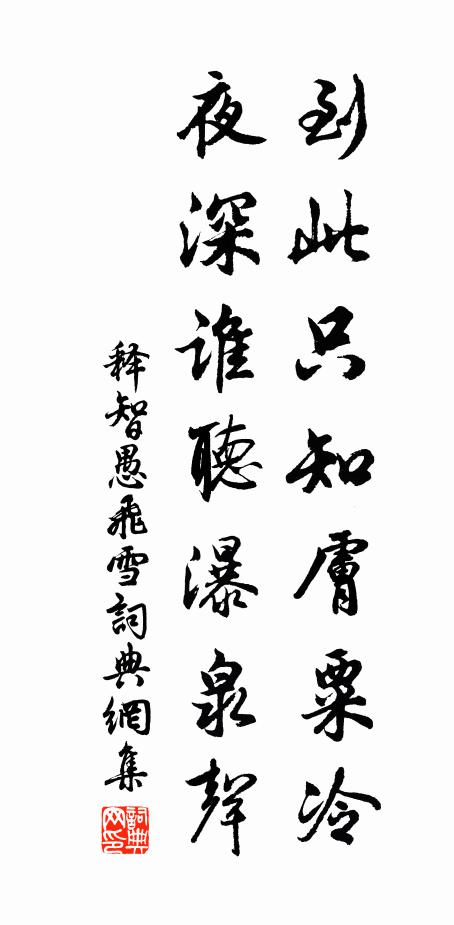 到此只知膚粟冷
夜深誰聽瀑泉聲
释智愚飛雪詞典網集
詞典网印